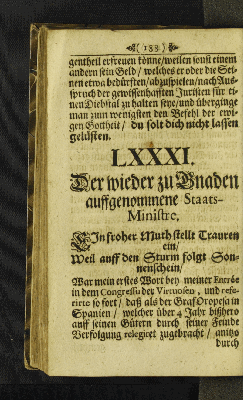 ( 188 )
gentheil erfreuen könne/weilen sonst einem
andern sein Geld / welches er oder die Sei-
nen etwa bedürfften/abzuspielen/nach Aus-
spruch der gewissenhafften Juristen für ei-
nen Diebstal zu halten seye/und übergienge
man zum wenigsten den Befehl der ewi-
gen Gottheit / du solt dich nicht lassen
gelüsten.
LXXXI.
Der wieder zu Gnaden
auffgenommene Staats-
Ministre,
EIn froher Muth stellt Trauren
ein/
Weil auff den Sturm folgt Son-
nenschein/
War mein erstes Wort bey meiner Entrée
in dem Congressu der Virtuosen, und refe-
rirte so fort / daß als der Graf Oropesa in
Spanien / welcher über 4 Jahr bißhero
auff seinen Gütern durch seiner Feinde
Verfolgung relegiret zugebracht / anitzo
durch